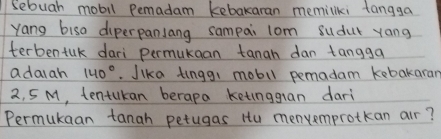 sebuah mobil pemadam kebakaran memiliki tangga
yang biso diperpanjang sampai 10m sudut yang
terbentuk dari permukaan tanah dan tangga
adalah 140°. Jika tinggi mobil pemadam kebakaran
2,5 M, tentukan berapa ketinggian dari
Permukaan tanah petugas itu menyemprotkan air?